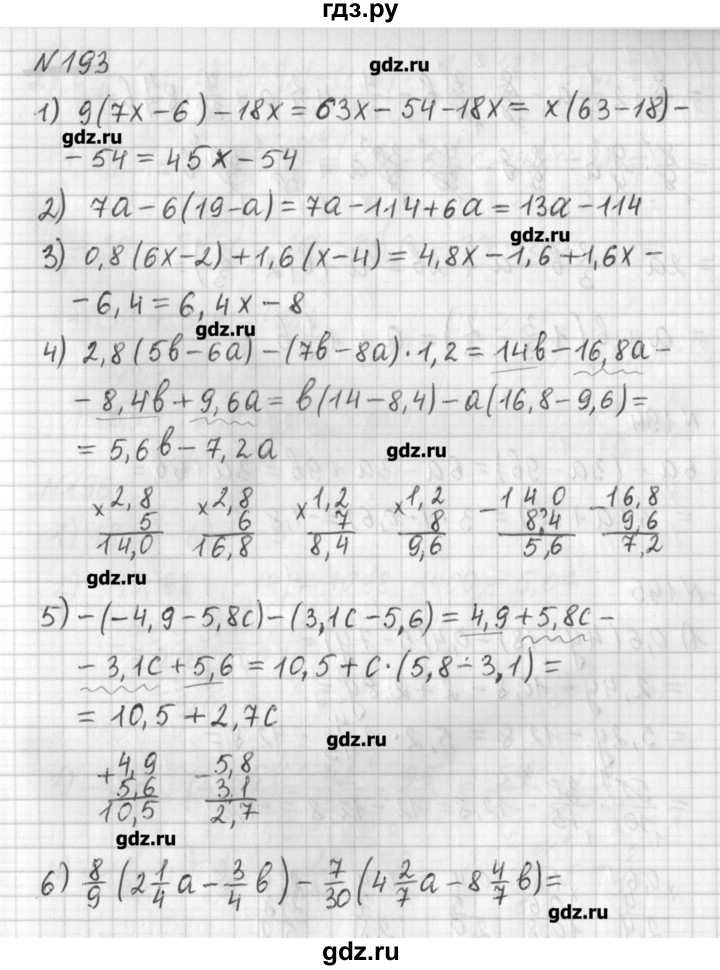 гдз.ру
№193
gdz.ru
1) 9(7x-6)-18x=63x-54-18x= x(63-18)-
gdz.ru
-54=45x-54
2) 7a-6(19-a)=7a-114+6a=13a-114
gdz.ru
3) 0,8(6x-2)+1,6(x-4)=4,8x-1,6+1,6x-
-6,4=6,4x-8
gdz.ru
4) 2,8(5в-6a)-(7в-8a)·1,2=14в-16,8a-
-8,4в+9,6a=в(14-8,4)-a(16,8-9,6)=
=5,6в-7,2a
gdz.ru
×2,8 ×2,8 ×1,2 ×1,2 -14,0 -16,8
5 6 7 8 8,4 9,6
14,0 16,8 8,4 9,6 5,6 7,2
gdz.ru
5) -(-4,9-5,8c)-(3,1c-5,6)=4,9+5,8c-
-3,1c+5,6=10,5+c·(5,8-3,1)=
=10,5+2,7c
gdz.ru
+4,9 -5,8
5,6 3,1
10,5 2,7
gdz.ru
6) 8/9(2 1/4a-3/4в)-7/30(4 2/7a-8 4/7в)=
gdz.ru
gdz.ru